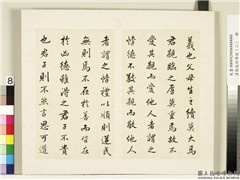 義也父母生之續莫大焉
君親臨之厚莫重焉故不
愛其親而愛他人者謂之
悖德不敬其親而敬他人
者謂之悖禮以順則逆民
無則焉不在於善而皆在
於凶德雖得之君子不貴
也君子則不然言思可道
8